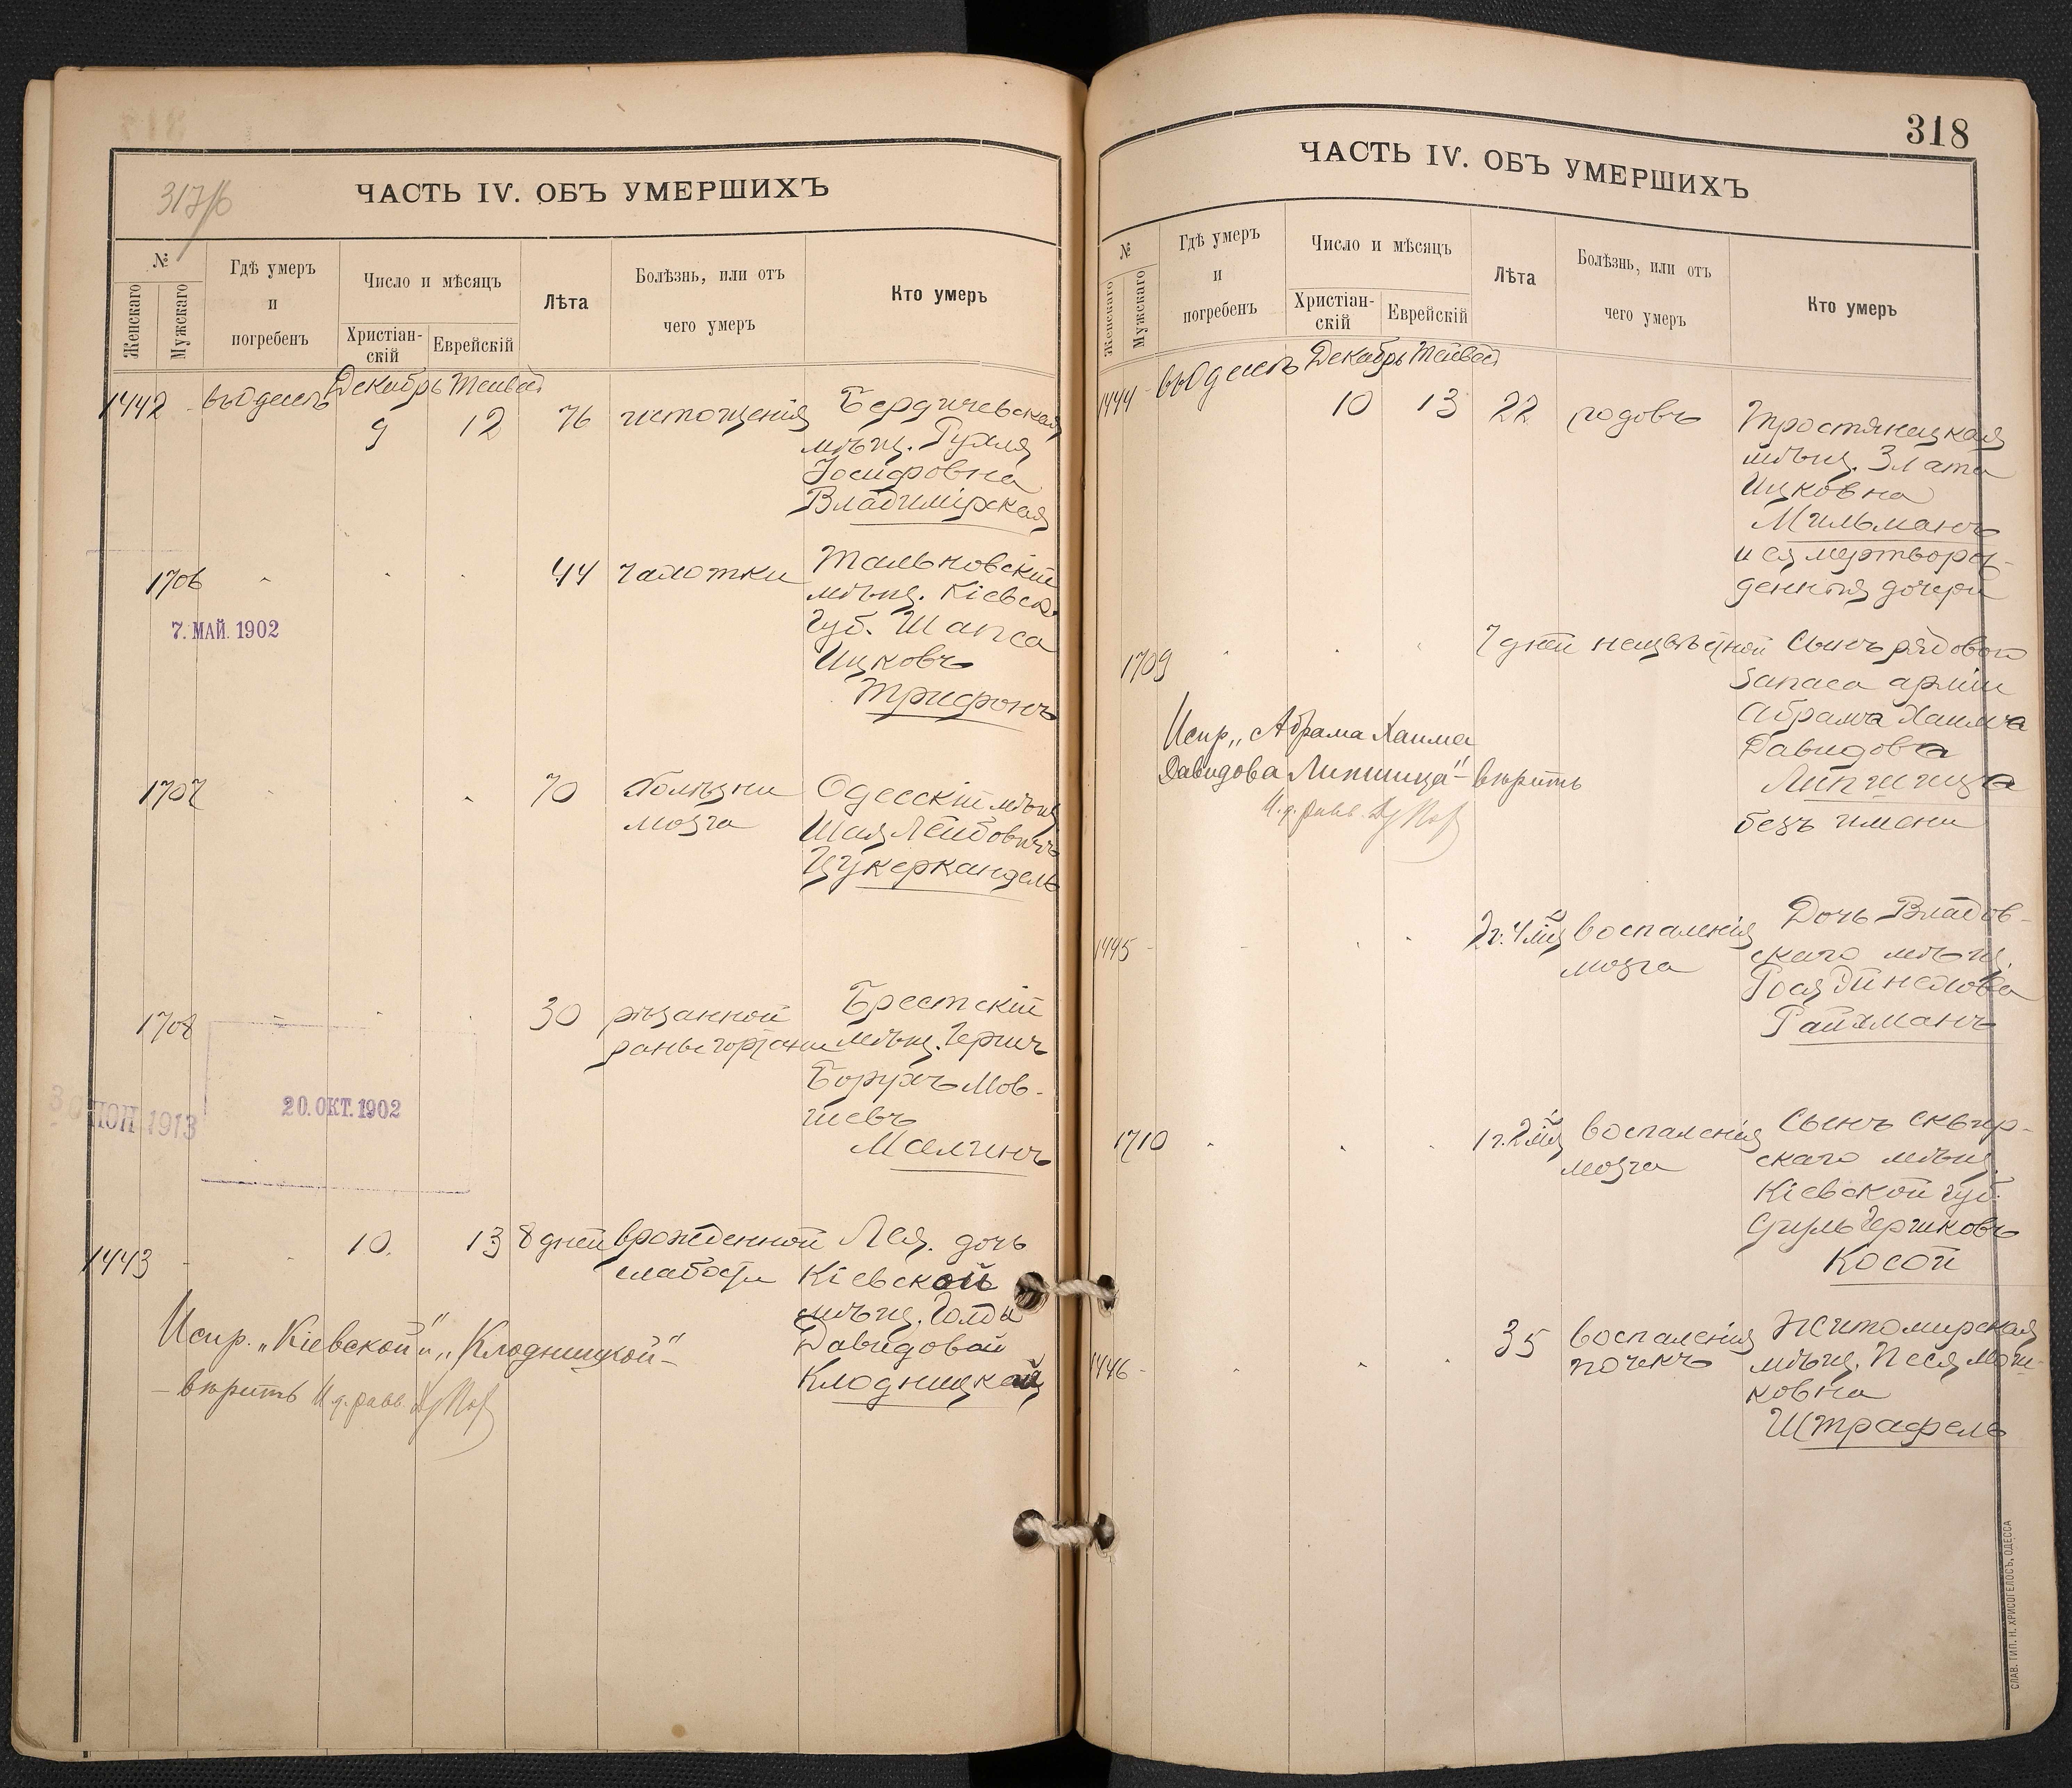 317/б
ЧАСТЬ IV. ОБЪ УМЕРШИХЪ
№
Женскаго
Мужскаго
Гдѣ умеръ
и
погребенъ
Число и мѣсяцъ
Христіан-
скій
Еврейскій
Лѣта
Болѣзнь, или отъ
чего умеръ
Кто умеръ
1442 въ Одессѣ Декабрь Тейвес
9 12 76 истощенія Бердичевская
мѣщ. Рухля
Іосифовна
Владимірская
1706 44 чахотки Тальновскій
мѣщ. Кіевск.
губ. Шапса
Ицковъ
Трифонъ
7. МАЙ. 1902
1707 70 болѣзни Одесскій мѣщ.
мозга Шая Лейбовичъ
Цукеркандель
1708 30 рѣзанной Брестскій
раны гортани мѣщ. Герш
Борухъ Мов-
шевъ
Малинъ
20. ОКТ. 1902
1913
1443 10. 13 8 дней врожденной Лея. дочь
слабости Кіевской
мѣщ. Голды
Давидовой
Клодницкой
Испр. „Кіевской" и „Клодницкой" –
– вѣрить И. д. равв.
318
ЧАСТЬ IV. ОБЪ УМЕРШИХЪ
№
Женскаго
Мужскаго
Гдѣ умеръ
и
погребенъ
Число и мѣсяцъ
Христіан-
скій
Еврейскій
Лѣта
Болѣзнь, или отъ
чего умеръ
Кто умеръ
1444 въ Одессѣ Декабрь Тейвес
10 13 22 родовъ Тростянецкая
мѣщ. Злата
Ицковна
Мильманъ
и ея мертворож-
денныя дочери
1709 7 дней неизвѣстной Сынъ рядового
запаса арміи
Абрама Хаима
Давидова
Липшица
безъ имени
Испр. „Абрама Хаима
Давидова Липшица" – вѣрить
И. д. равв.
1445 2 г. 4 мѣс воспаленія Дочь Владов-
мозга скаго мѣщ.
Рося
Райхманъ
1710 1 г. 2 мѣс воспаленія Сынъ сквир-
мозга скаго мѣщ.
Кіевской губ.
Сруль Гершковъ
Косой
1446 35 воспаленія Житомирская
почекъ мѣщ. Песя Мош-
ковна
Штрафель
СЛАВ. ТИП. Н. ХРИСОГЕЛОСЪ, ОДЕССА